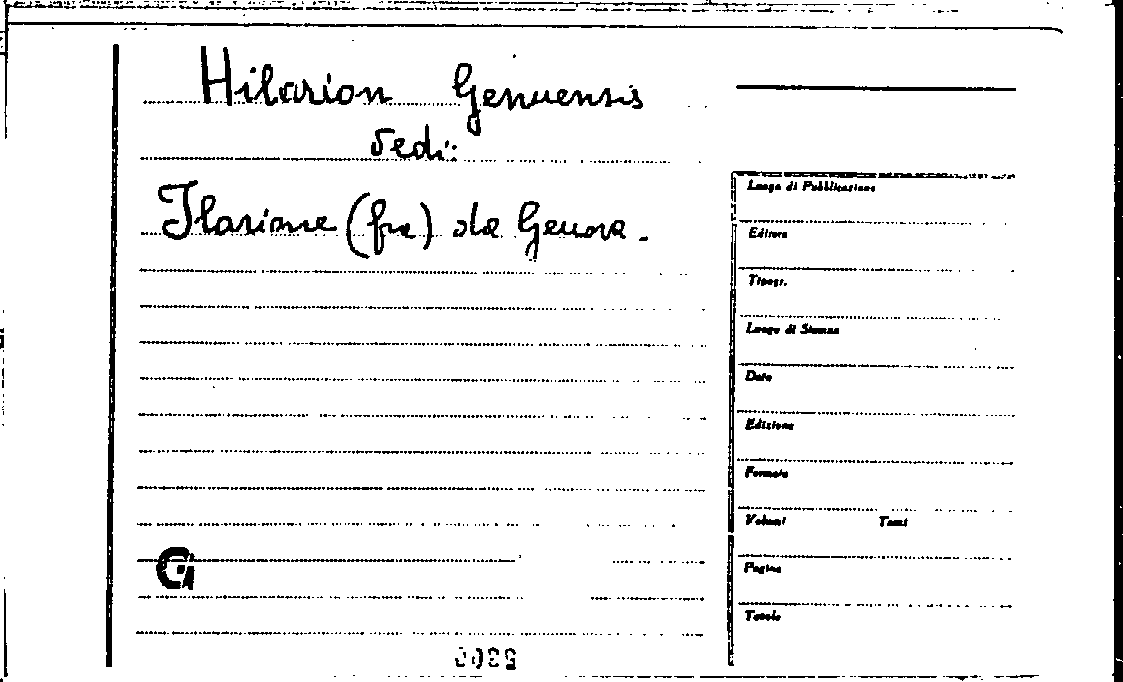 Hilarion Genuensis
Vedi:
Ilarione (fra) da Genova.
Luogo di Pubblicazione
Editore
Tipogr.
Luogo di Stampa
Data
Edizione
Formato
Volumi Tomi
Pagine
Tavole
G